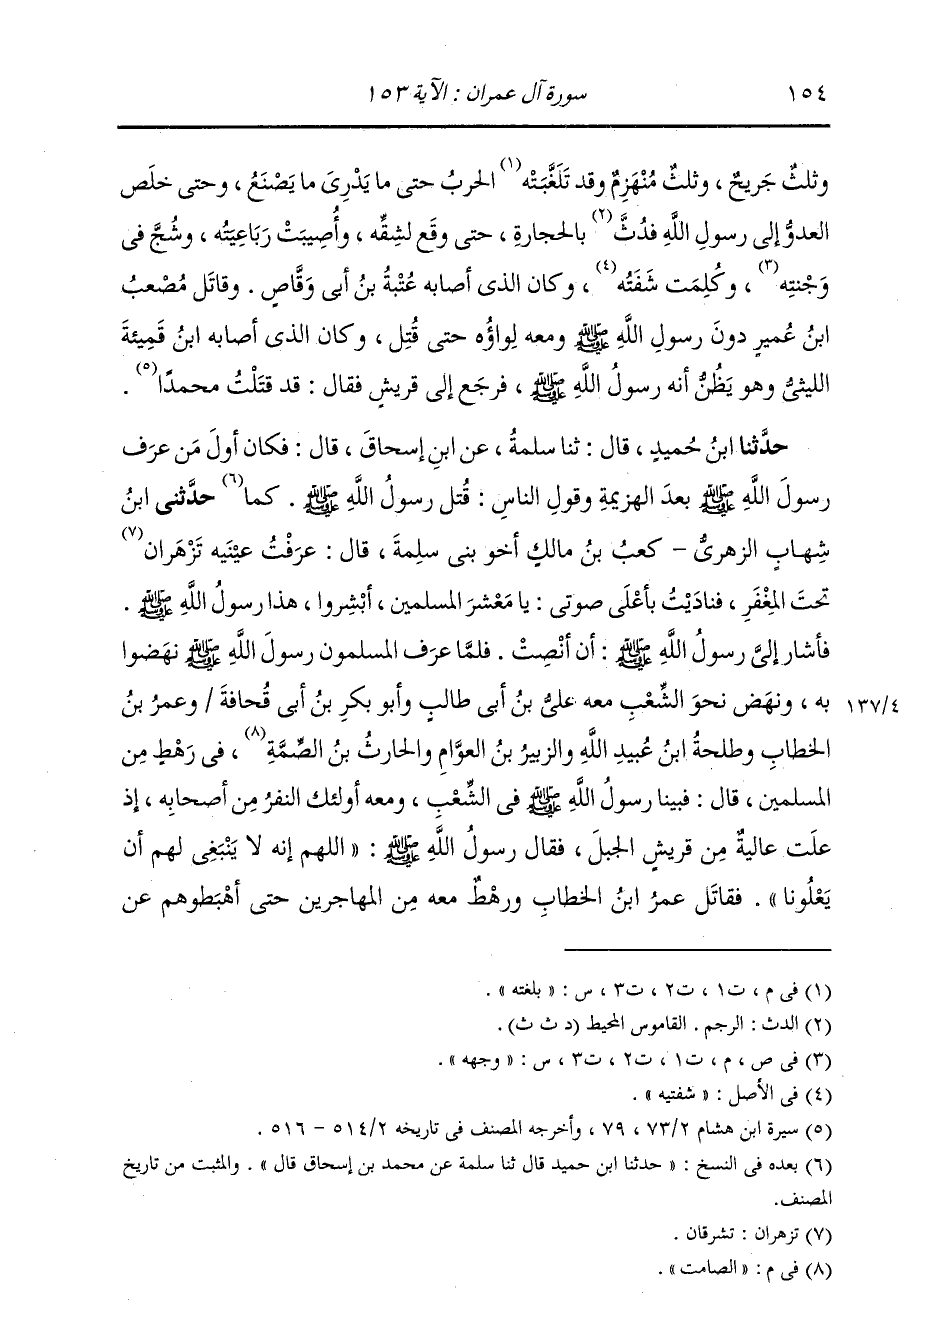 ١٥٤ سورة آل عمران : الآية ١٥٣
وثلثٌ جَريحٌ ، وثلثٌ مُنْهَزِمٌ وقد تَلَغَّبَتْه(١) الحربُ حتى ما يَدْرِىَ ما يَصْنَعُ ، وحتى خلَص
العدوُّ إلى رسولِ اللَّهِ فدُثَّ(٢) بالحجارةِ ، حتى وقَع لشِقِّه ، وأُصِيبَتْ رَبَاعِيَتُه ، وشُجَّ فى
وَجْنتِه(٣) ، وكُلِمَت شَفَتُه(٤) ، وكان الذى أصابه عُتْبةُ بنُ أبى وَقَّاصٍ . وقاتَل مُصْعبُ
ابنُ عُميرٍ دونَ رسولِ اللَّهِ ﷺ ومعه لِواؤُه حتى قُتِل ، وكان الذى أصابه ابنُ قَمِيئةَ
الليثىُّ وهو يَظُنُّ أنه رسولُ اللَّهِ ﷺ ، فرجَع إلى قريشٍ فقال : قد قتَلْتُ محمدًا(٥) .
حدَّثنا ابنُ حُميدٍ ، قال : ثنا سلمةُ ، عن ابنِ إسحاقَ ، قال : فكان أولَ مَن عرَف
رسولَ اللَّهِ ﷺ بعدَ الهزيمةِ وقولِ الناسِ : قُتل رسولُ اللَّهِ ﷺ . كما(٦) حدَّثنى ابنُ
شِهابٍ الزهرىُّ – كعبُ بنُ مالكٍ أخو بنى سلِمةَ ، قال : عرَفْتُ عيْنَيه تَزْهَران(٧)
تحتَ المِغْفَرِ ، فنادَيْتُ بأعْلَى صوتى : يا مَعْشرَ المسلمين ، أبْشِروا ، هذا رسولُ اللَّهِ ﷺ .
فأشار إلىَّ رسولُ اللَّهِ ﷺ : أن أنْصِتْ . فلمَّا عرَف المسلمون رسولَ اللَّهِ ﷺ نهَضوا
به ، ونهَض نحوَ الشِّعْبِ معه علىُّ بنُ أبى طالبٍ وأبو بكرِ بنُ أبى قُحافةَ / وعمرُ بنُ ١٣٧/٤
الخطابِ وطلحةُ ابنُ عُبيدِ اللَّهِ والزبيرُ بنُ العوَّامِ والحارثُ بنُ الصِّمَّةِ(٨) ، فى رَهْطٍ مِن
المسلمين ، قال : فبينا رسولُ اللَّهِ ﷺ فى الشِّعْبِ ، ومعه أولئك النفرُ مِن أصحابِه ، إذ
علَت عاليةٌ مِن قريشٍ الجبلَ ، فقال رسولُ اللَّهِ ﷺ : « اللهم إنه لا يَنْبَغِى لهم أن
يَعْلُونا » . فقاتَل عمرُ ابنُ الخطابِ ورهْطٌ معه مِن المهاجرين حتى أهْبَطوهم عن
(١) فى م ، ت١ ، ت٢ ، ت٣ ، س : « بلغته » .
(٢) الدث : الرجم . القاموس المحيط (د ث ث) .
(٣) فى ص ، م ، ت١ ، ت٢ ، ت٣ ، س : « وجهه » .
(٤) فى الأصل : « شفتيه » .
(٥) سيرة ابن هشام ٧٣/٢ ، ٧٩ ، وأخرجه المصنف فى تاريخه ٥١٤/٢ – ٥١٦ .
(٦) بعده فى النسخ : « حدثنا ابن حميد قال ثنا سلمة عن محمد بن إسحاق قال » . والمثبت من تاريخ
المصنف.
(٧) تزهران : تشرقان .
(٨) فى م : « الصامت » .